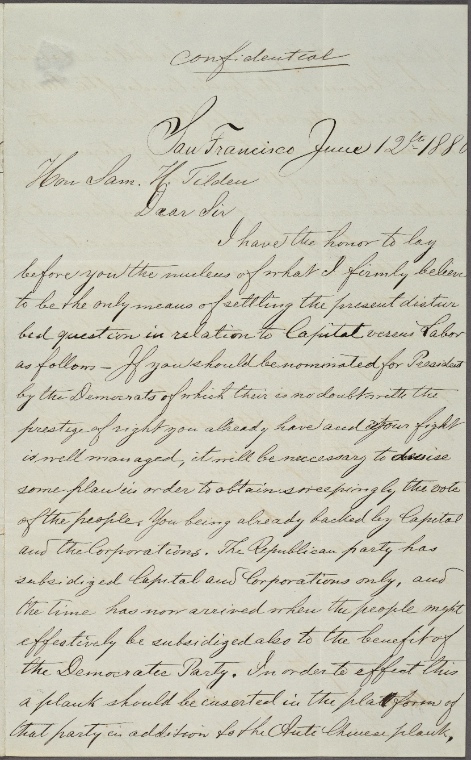 Confidential
San Francisco June 12th 1880
Hon Sam. H. Tilden
Dear Sir
I have the honor to lay
before you the nucleus of what I firmly believe
to be the only means of settling the present distur
bed question in relation to Capital versus Labor
as follows – If you should be nominated for President
by the Democrats of which their is no doubt with the
prestige of right you already have and your fight
is well managed, it will be necessary to devise
some plan in order to obtain sweepingly the vote
of the people, You being already backed by Capital
and the Corporations. The Republican party has
subsidized Capital and Corporations only, and
the time has now arrived when the people must
effectively be subsidized also to the benefit of
the Democratic Party. In order to effect this
a plank should be inserted in the platform of
that party in addition to the Anti Chinese plank,